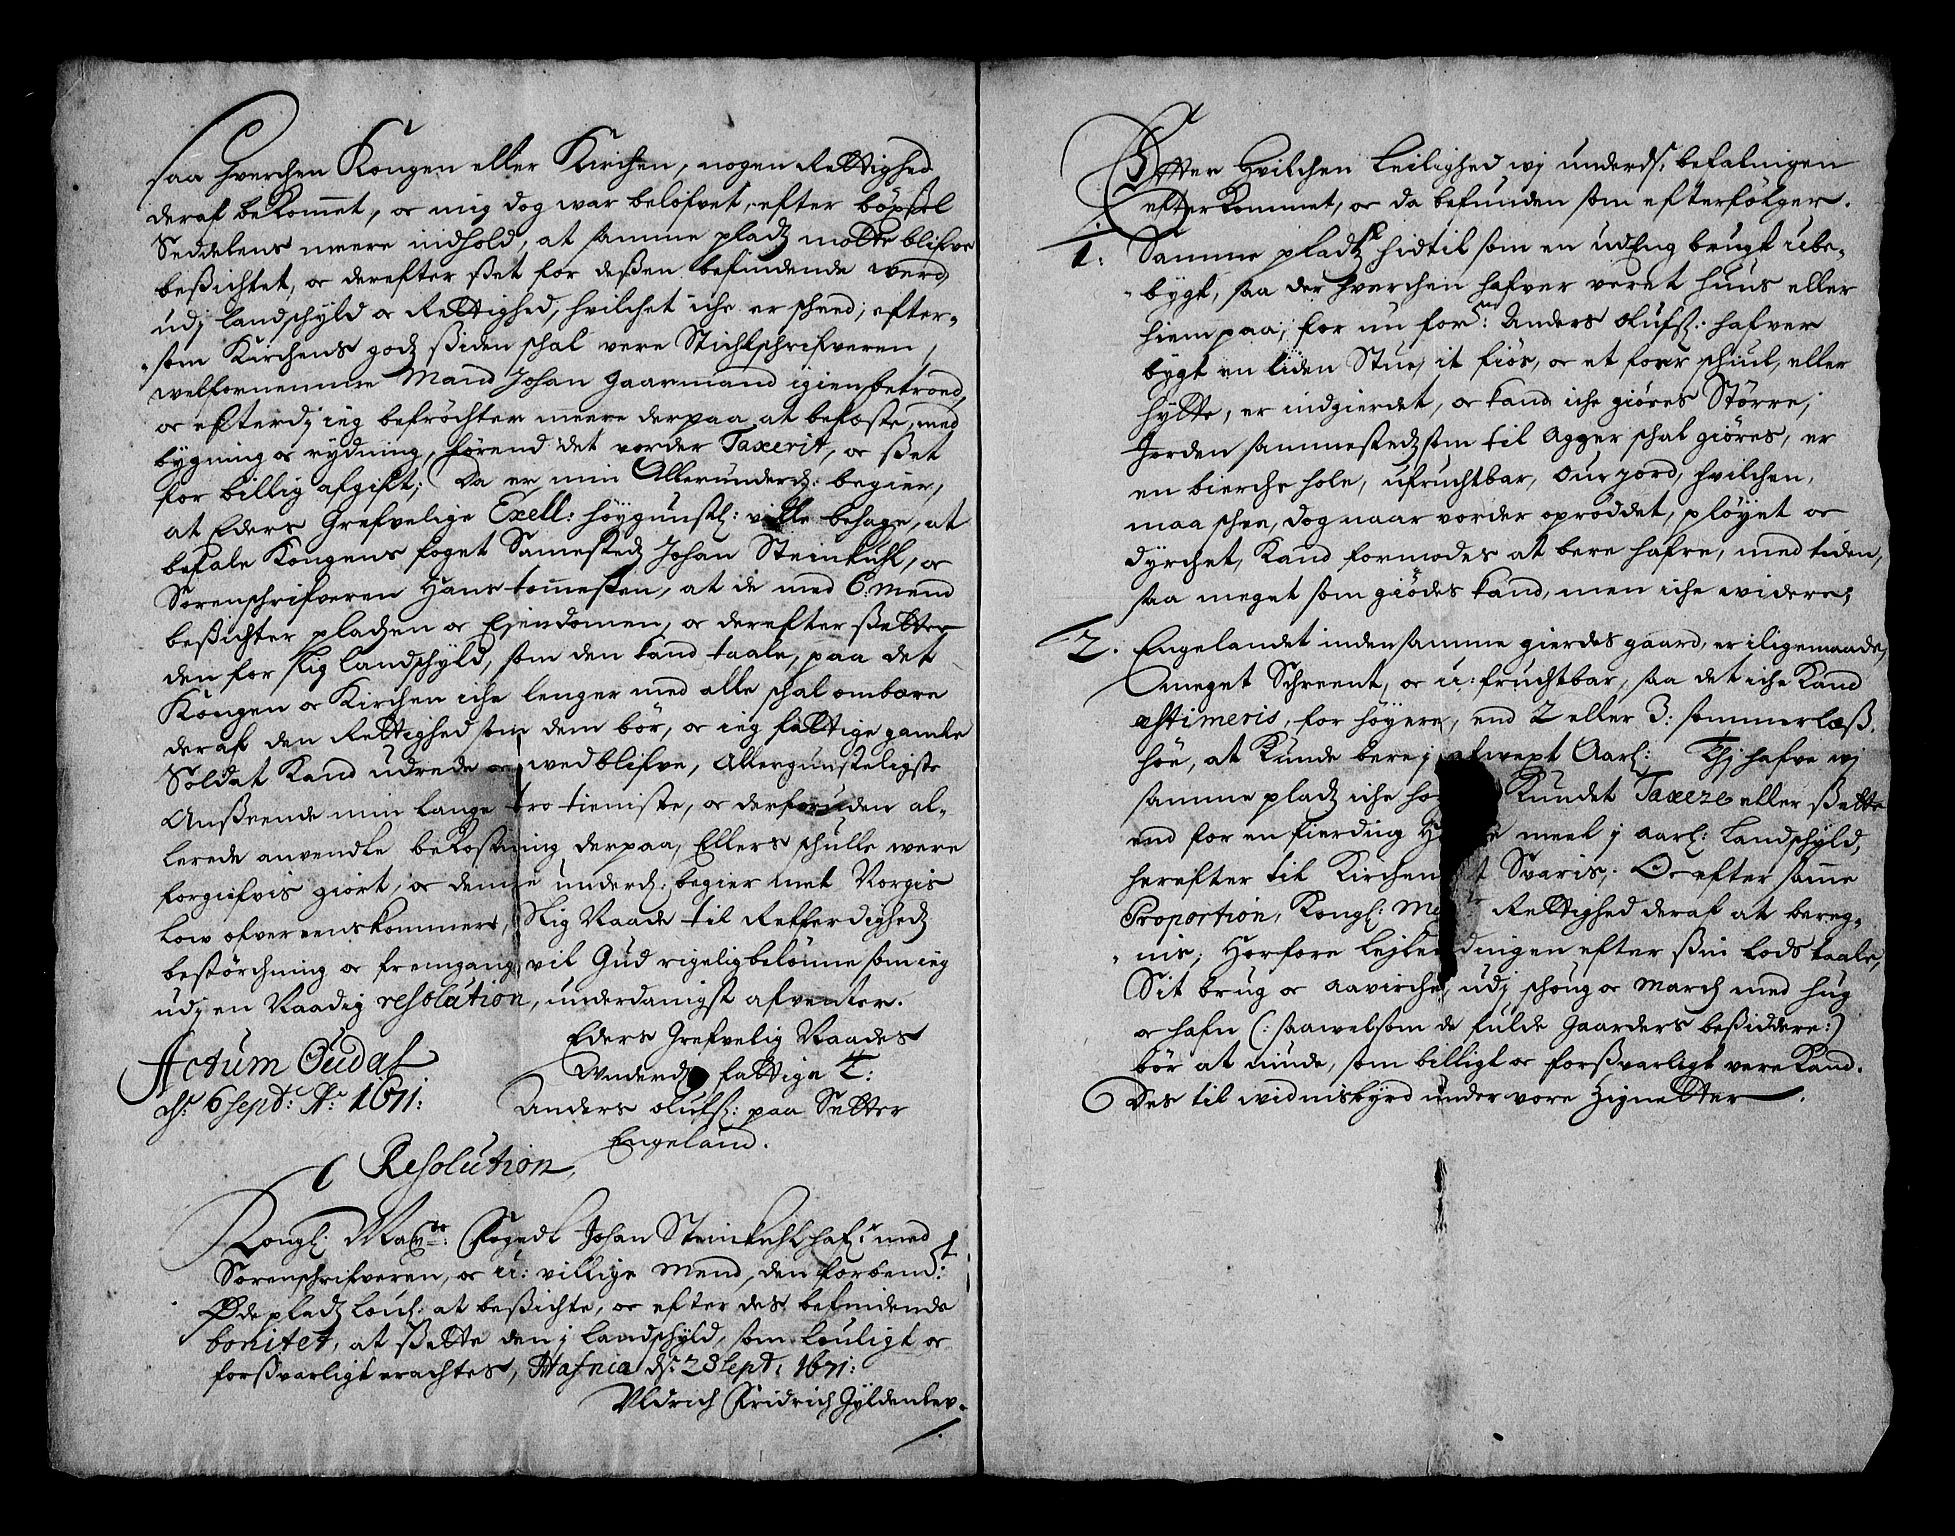 saa hverchen Kongen eller Kirchen, nogen Rettighed
deraf bekommet, oc mig dog war belofvet, efter böxsel
Seddelens meere indhold, at samme pladtz motte blifve
beßichtet, oc derefter ßet for deßen befindende werd,
udj landschyld oc Rettighed, hvilchet iche er scheed; efter-
som Kirchens godtz ßiden schal vere Stichtschrifveren,
welfornemme Mand Johan Gaarmand igien betroed,
oc efterdj ieg befröchter meere derpaa at bekoste, med
bygning oc rydning, förend det vorder Taxerit, oc ßet
for billig afgift; Da er min Allerunderd: begier,
at Eders Grefvelige Exell: höygunstl: ville behage, at
befale Kongens foget Samestedtz Johan Steinkuhl, oc
Sorenschrifveren Hans tommeßen, at de med 6. Mend
beßichter pladzen oc Ejendomen, oc derefter ßetter
den for slig landschyld, som den kand taale, paa det
Kongen oc Kirchen iche lenger med alle schal ombære
deraf den Rettighed som dem bör, oc ieg fattige gamle
Soldat Kand udrede oc wedblifve, Allergunsteligste
Anßeende min lange tro tieniste, oc derforuden al-
lerede anvendte bekostning derpaa, Ellers schulle were
forgiefvis giort, oc denne underd: begier met Norgis
low ofvereenskommer, Slig Naade til Retferdighedtz
bestörchning oc fremgang, vil Gud rigelig belönne som ieg
udj en Naadig resolution, underdanigst afventer.
Eders Grefvelig Naades
Underd: fattige T:
Actum Oudal
Anders olufs: paa Setter
d: 6 sept: Ao: 1671:
Engeland.
Resolution,
Kongl: Maytz: Fogedt Johan Steinkuhl hafr med
Sorenschrifveren, oc u: villige Mend, den forbemt:
Øde pladtz loul: at beßichte, oc efter des befindende
bonitet, at ßette den j landschyld, som louligt oc
forßvarligt erachtes, Hafnia ds: 23 Sept: 1671:
Uldrich Fridrich Gyldenlev.
Efter hvilchen Leilighed wj underds: befalningen
efterkommet, oc da befunden som efterfölger.
1: Samme pladtz hidtil som en udEng brugt ube-
bygt, saa der hverchen hafver veret huus eller
hiem paa, for nu forne: Anders olufs: hafver
bygt en liden Stue, it fiös, oc et foer schiul, eller
hytte, er indgierdet, oc kand iche giöres Större,
Jorden sammestedtz som til Agger schal giöres, er
en bierche hole, ufruchtbar, Our Jord, hvilchen,
maa schee, dog naar vorder opröddet, plöyet oc
dyrchet, Kand formodes at bere hafre, med tiden,
saa meget som giödes kand, men iche widere;
2. Engelandet inden samme gierdes gaard, er iligemaade,
meget Schreent, oc u:fruchtbar, saa det iche Kand
æstimeris, for höyere, end 2 eller 3: sommerlæß.
höe, at Kunde bere j afwext Aarl: Thj hafve wj
samme pladtz iche Kundet Taxere eller ßette
end for en fierding meel j aarl: Landschyld,
herefter til Kirchen Svaris; Oc efter samme
Proportion, Kongl: Rettighed deraf at bereg-
nis; Horfore Lejlendingen efter ßin lods taale,
Sit brug oc aavirche, udj schoug oc March med hug
oc hafn (: saawelsom de fulde Gaarders beßiddere:)
bör at niude, som billigt oc forßvarligt vere Kand.
Des til widnisbyrd under vore Zignetter.